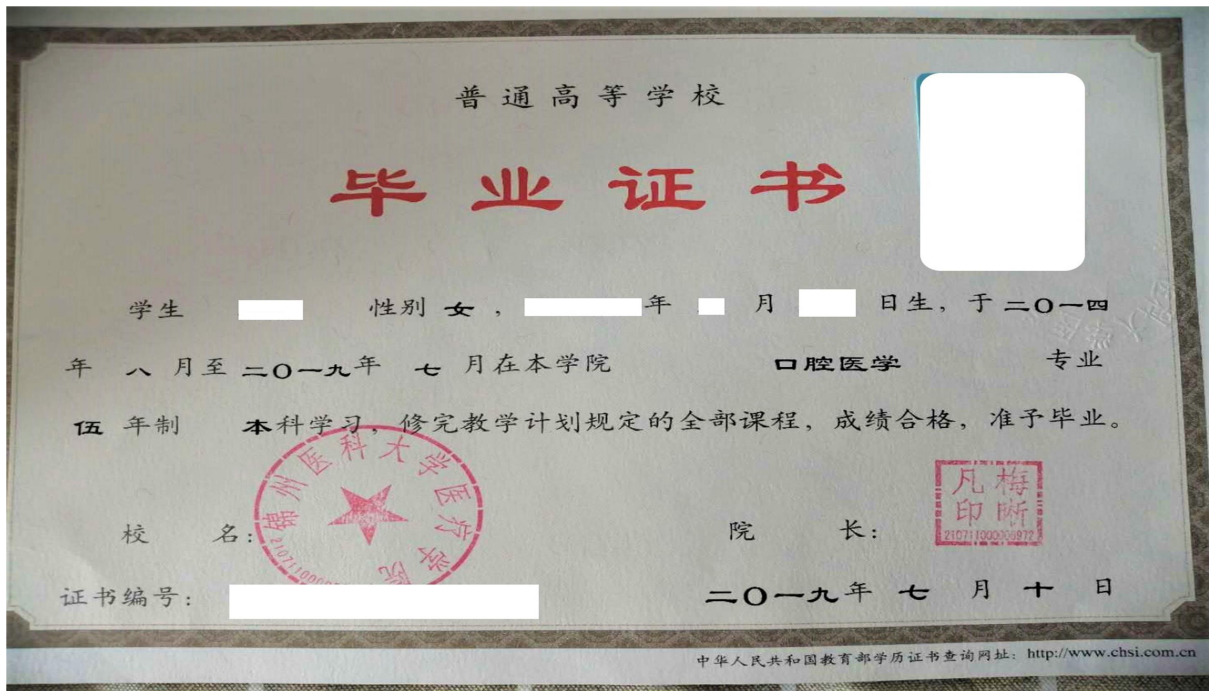 普通高等学校
毕业证书
学生 性别 女， 年 月 日生，于 二〇一四
年 八 月至 二〇一九年 七 月在本学院 口腔医学 专业
伍 年制 本科学习，修完教学计划规定的全部课程，成绩合格，准予毕业。
锦州医科大学医疗学院
凡梅
印晰
2107110000069​72
校 名： 院 长：
证书编号： 二〇一九年 七 月 十 日
中华人民共和国教育部学历证书查询网址：http://www.chsi.com.cn